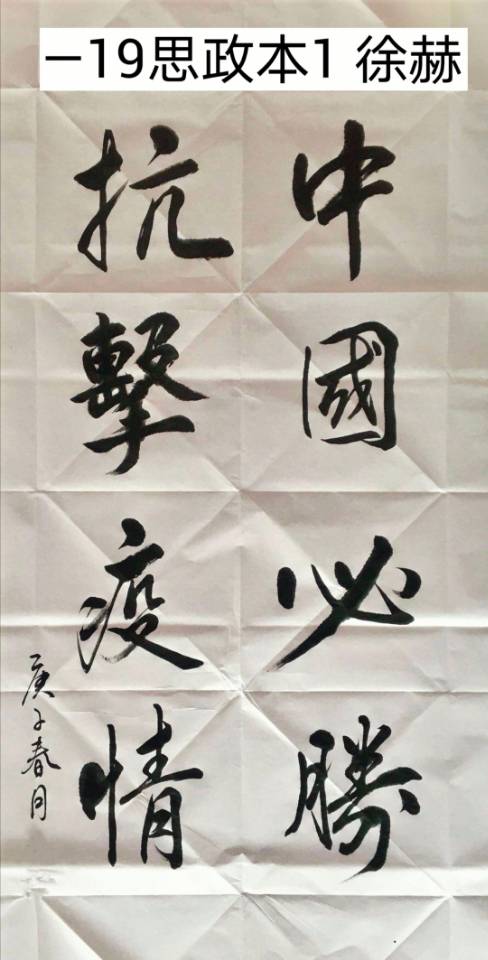 —19思政本1 徐赫
中國必勝
抗擊疫情
庚子春月